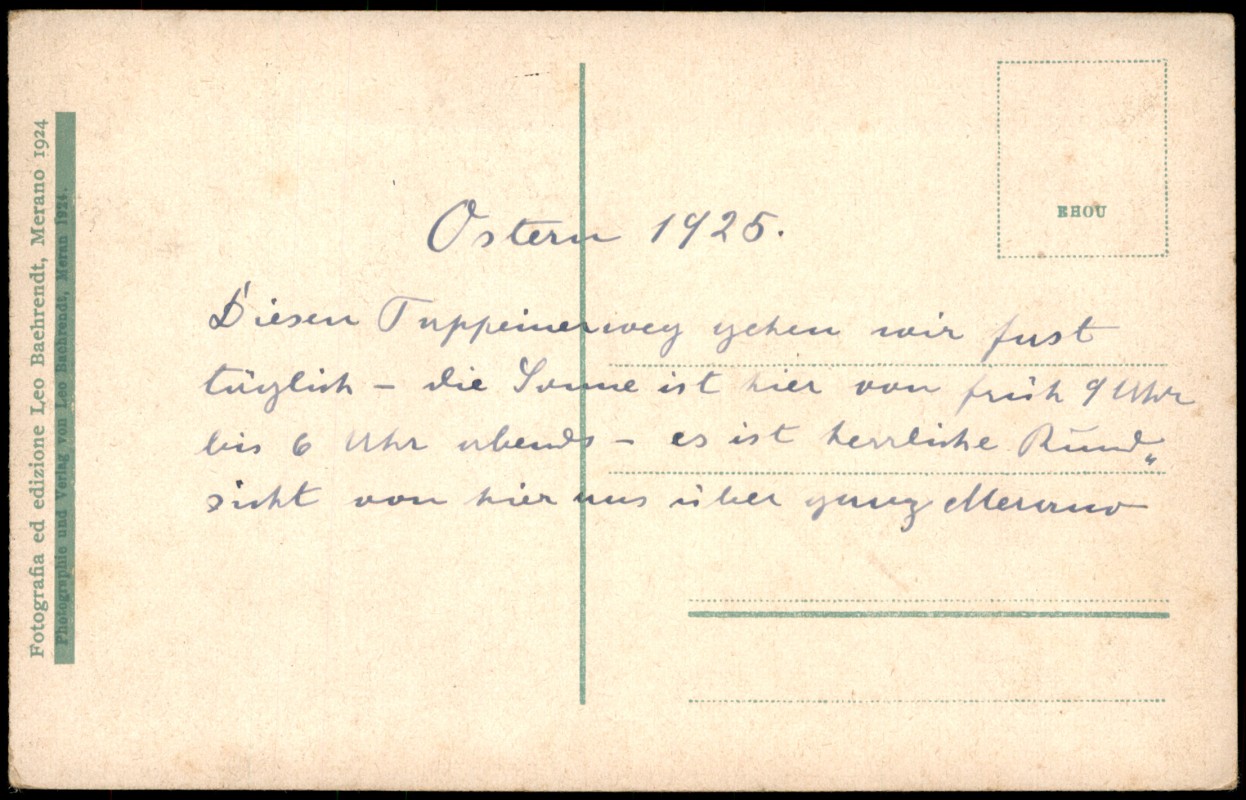 Fotografia ed edizione Leo Baehrendt, Merano 1924
Photographie und Verlag von Leo Baehrendt, Meran 1924.
EHOU
Ostern 1925.
Diesen Tappeinerweg gehen wir fast
täglich – die Sonne ist hier von früh 9 Uhr
bis 6 Uhr abends – es ist herrliche Rund„
sicht von hier aus über ganz Merano